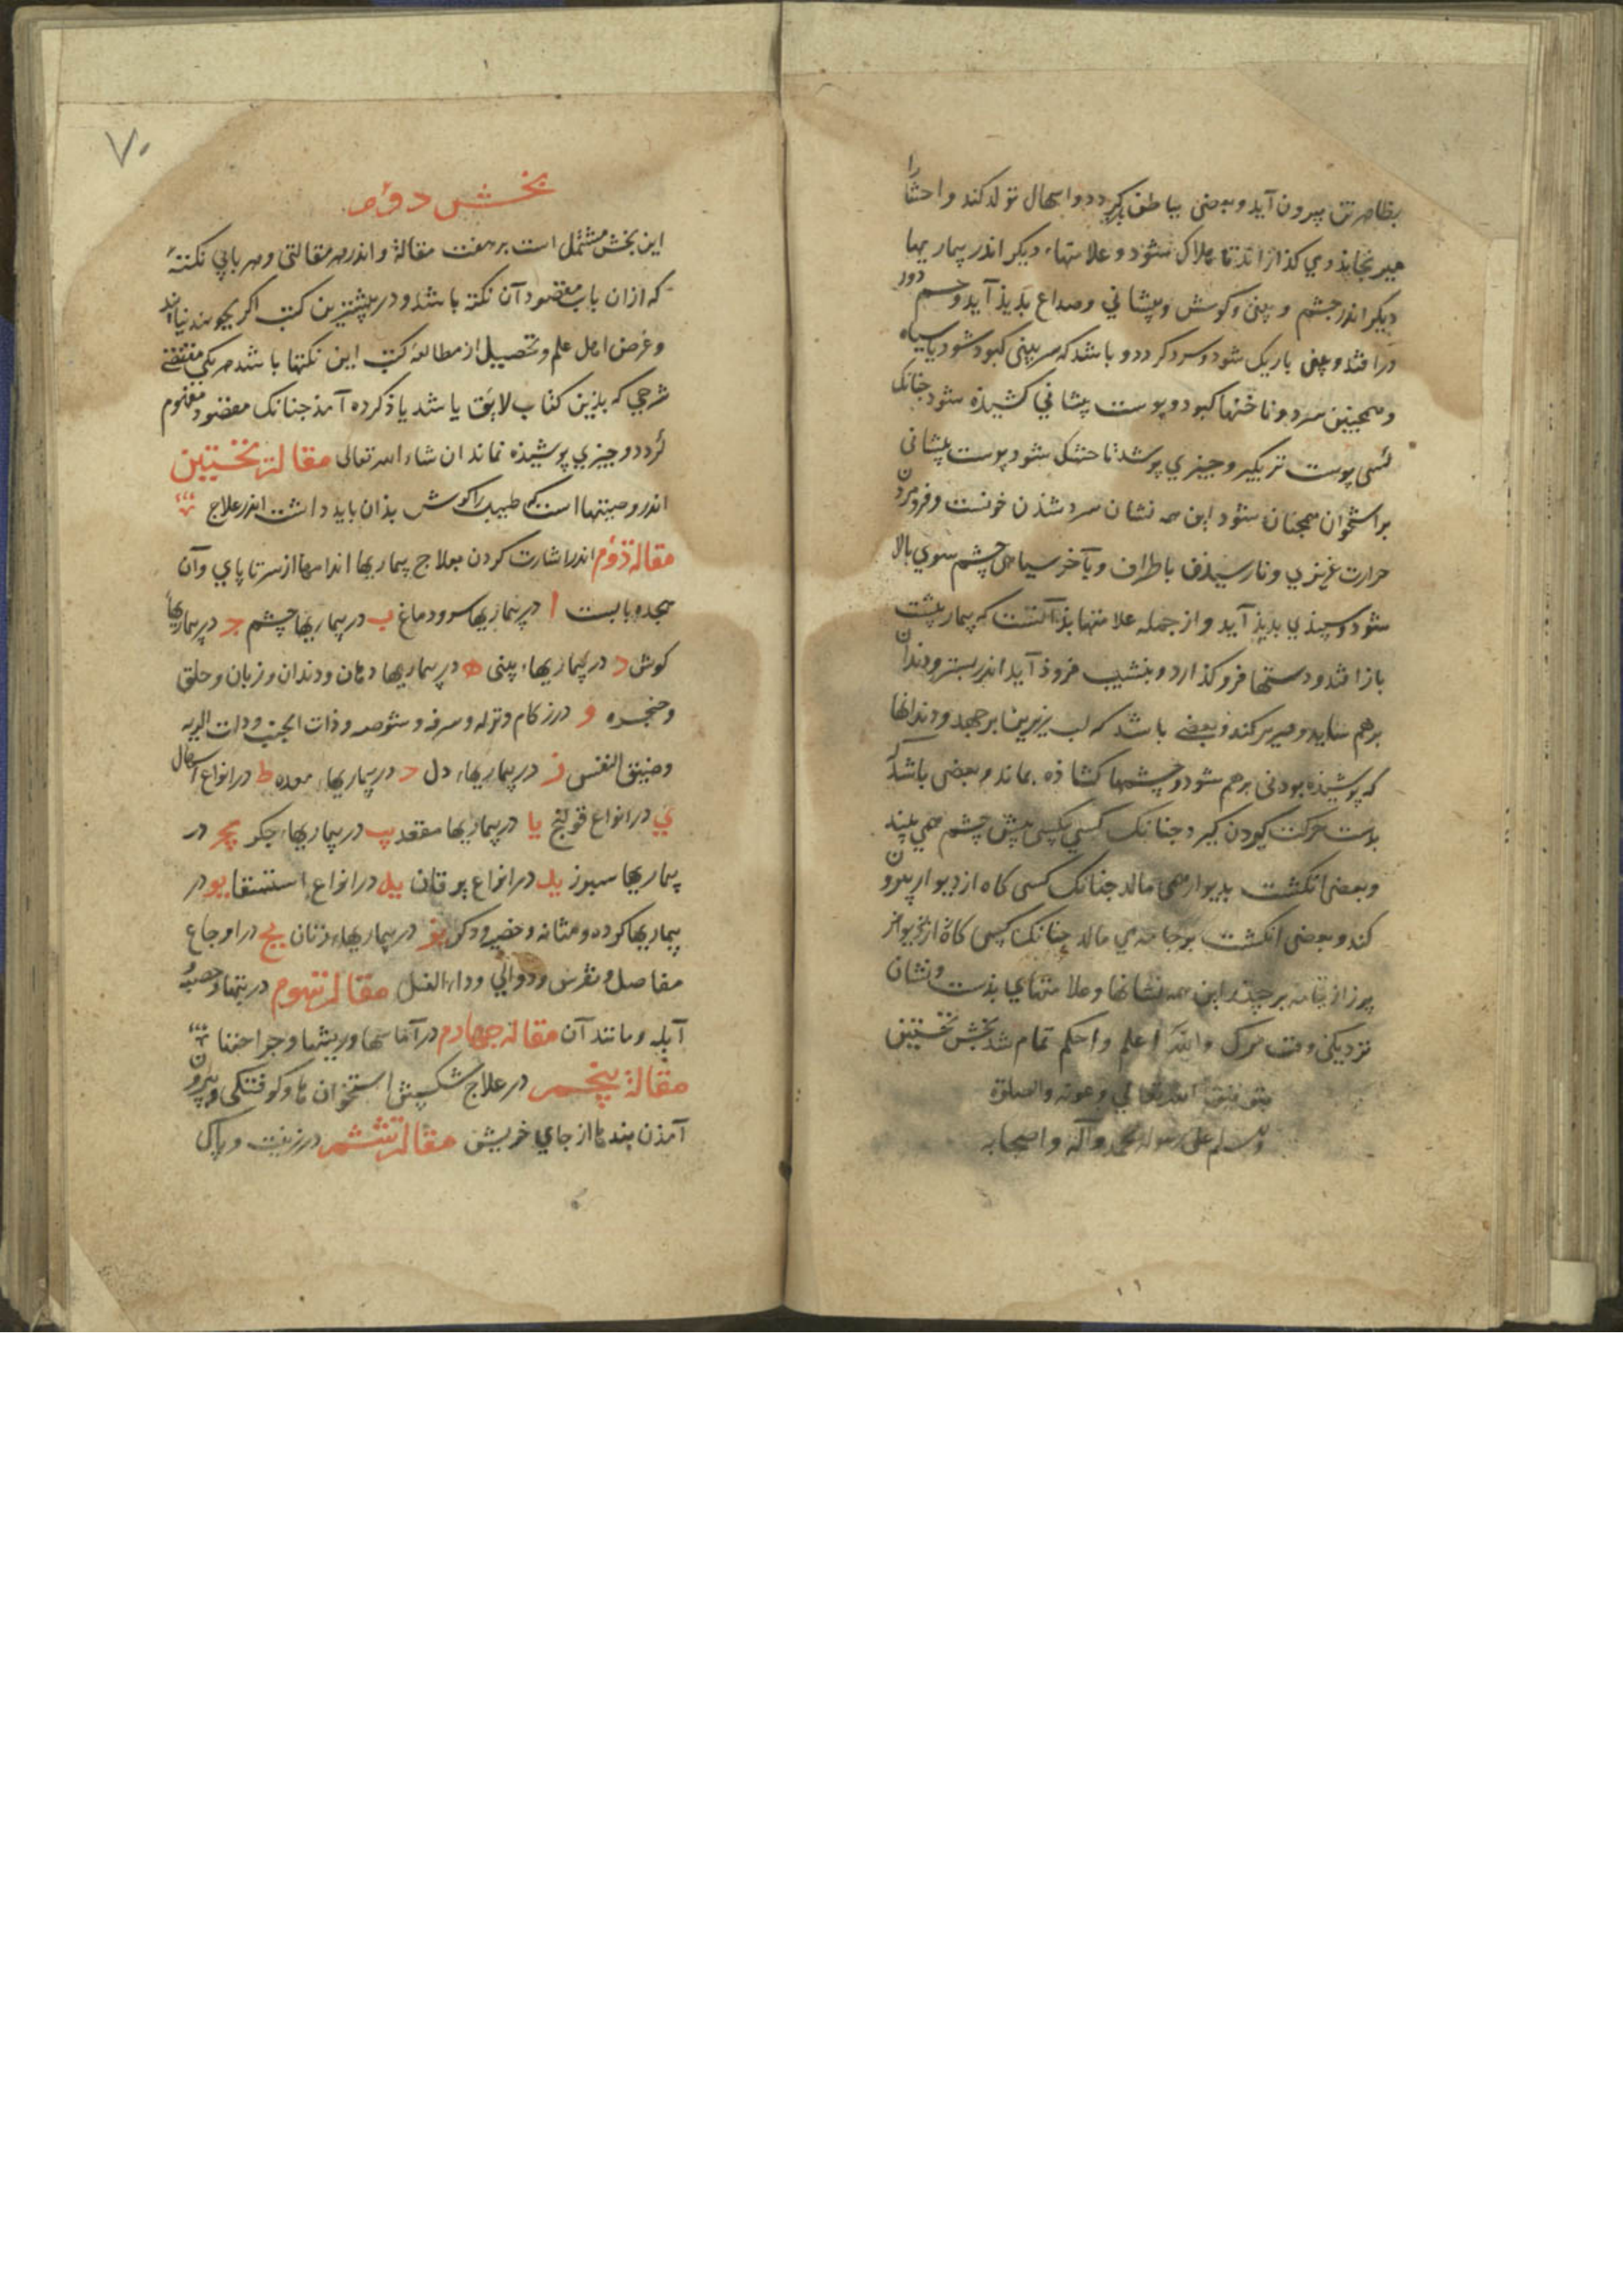 بظاهر تن بیرون آید و بعضی بباطن بازگردد و اسهال تولد کند و احشا را
همی خایذ ومی کذازاند تا هلاک شود و علامتهاء دیکر اندر بیماریها
دیکر اندر چشم و بینی و کوش و پیشانی و صداع بدید آید و چشم دور
درافتد و بینی باریک شود و سرد کردد و باشد که سر بینی کبود شود یا سیاه
و همچنین سرد و ناخنها کبود و پوست پیشانی کشیذه شود جنانک
کسی پوست تر بگیرد و بر چیزی پوشد تا خشک شود پوست پیشانی
بر استخوان همجنان شود این همه نشان سرد شذن خونست و فرو مردن
حرارت غریزی و نارسیذن باطراف و بآخر سیاهی چشم سوی بالا
شود و سپیذی بدیذ آید و از جمله علامتها بذ آنست که بیمار بپشت
باز افتد و دستها فرو کذارد و بنشیب فروذ آید اندر بستر و دندان
برهم ساید و صریر کند و بعضی باشد که لب زیرین برجهد و دندانها
که پوشیذه بودی برهم شود و چشمها کشاذه بماند و بعضی باشد که
بدست حرکت کردن کیرد جنانک کسی مکسی پیش چشم همی بیند
و بعضی انکشت بدیوار همی مالد جنانک کسی کاه از دیوار بیرون
کند و بعضی انکشت بر جامه می مالد جنانک کسی کاه از
پرز از جامه برچیند این همه نشانها و علامتهای بذست و نشان
نزدیکی وقت مرک والله اعلم و احکم تمام شد بخش نخستین
بتوفیق الله تعالی و عونه والصلوة
والسلام علی رسوله محمد و آله و اصحابه
۷۰
بخش دوم
این بخش مشتمل است بر هفت مقالة و اندر هر مقالتی و هر بابی نکتۀ
که ازان باب مقصود آن نکته باشد و در بیشترین کتب اکر بجویند نیابند
و غرض اهل علم و تحصیل از مطالعۀ کتب این نکتها باشد هر یکی مقتضی
شرحی که بذین کتاب لایق باشد یاذ کرده آمذ جنانک مقصود مفهوم
کردد و چیزی پوشیذه نماند ان شاء الله تعالی مقالۀ نخستین
اندر وصیتهااست که طبیب را کوش بذان باید داشت اندر علاج
مقالۀ دوم اندر اشارت کردن بعلاج بیماریها اندامها از سر تا پای و آن
هجده بابست ا در بیماریها سر و دماغ ب در بیماریها چشم ج در بیماریها
کوش د در بیماریهاء بینی ه در بیماریها دهان و دندان و زبان و حلق
و حنجره و در زکام و نزله و سرفه و شوصه و ذات الجنب و ذات الریه
و ضیق النفس ز در بیماریهاء دل ح در بیماریهاء معده ط در انواع اسهال
ی در انواع قولنج یا در بیماریها مقعد یب در بیماریهاء جکر یج در
بیماریها سپرز ید در انواع یرقان یه در انواع استسقا یو در
بیماریها کرده و مثانه و خصیه و ذکر یز در بیماریهاء زنان یح در اوجاع
مفاصل و نقرس و دوالی و داء الفیل مقالۀ سوم در تبها و حصبه
آبله و مانند آن مقالۀ چهارم در آماسها و ریشها و جراحتها
مقالۀ پنجم در علاج شکستن استخوان ها و کوفتکی و بیرون
آمذن بندها از جای خویش مقالۀ ششم در زینت و پاکی